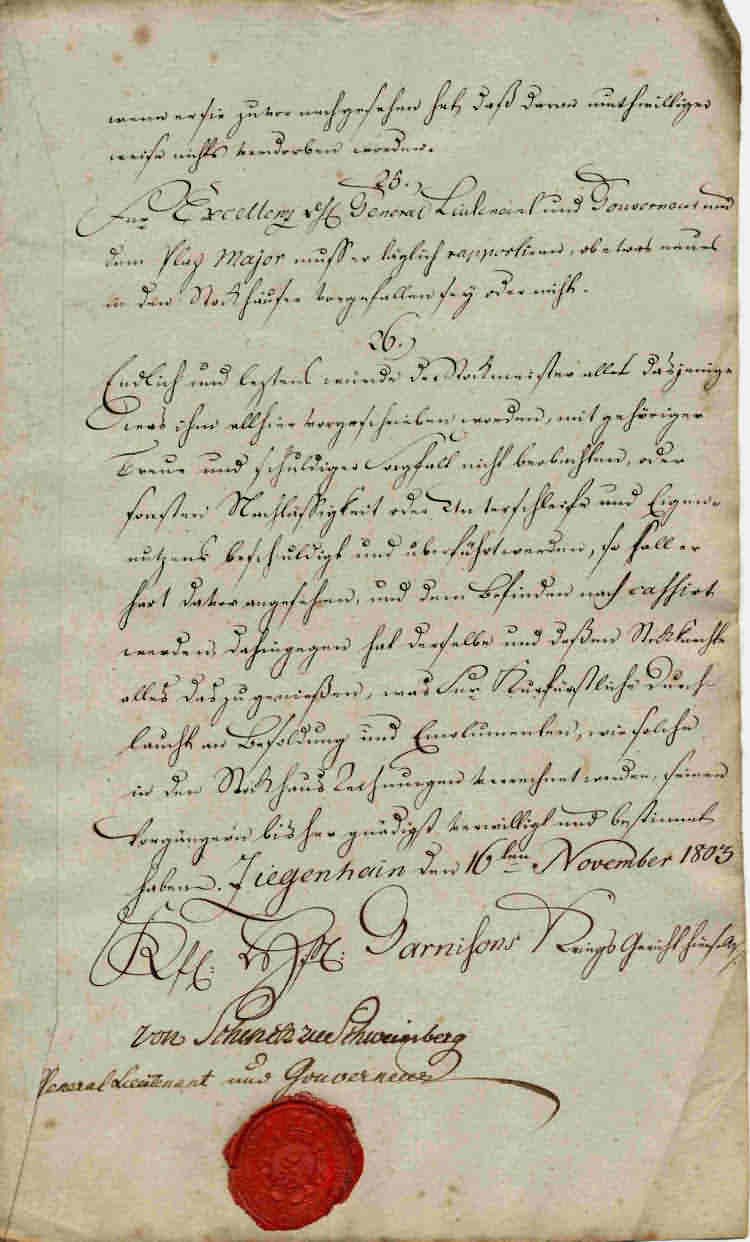 wenn er sie zuvor nachgesehen hat, daß daran muthwilliger
weise nichts verdorben worden.
25.
Sr. Excellenz dH General Lieutenant und Gouverneur und
dem Plaz Major muss er täglich rapportiren, ob etwas neues
in den Stockhäuser vorgefallen sey oder nicht.
26.
Endlich und leztens würde der Stockmeister alles dasjenige
was ihm allhier vorgeschrieben worden, mit gehöriger
Treue und schuldiger Sorgfalt nicht beobachten, oder
sonsten Nachlässigkeit oder Unterschleife und Eigen-
nutzens beschuldigt und überführt werden, so soll er
hart davor angesehen, und dem Befinden nach cassirt
werden, dahingegen hat derselbe und deßen Stockknechte
alles das zu genießen, was Sr. Kurfürstliche Durch-
laucht an Besoldung und Emolumenten, wie solche
in den Stockhaus Rechnungen verrechnet werden, seinen
Vorgängern bisher gnädigst verwilligt und bestimmt
haben. Ziegenhain den 16ten November 1803
Garnisons Kriegs Gericht hieselbst
von Schenck zu Schweinsberg
General Lieutenant und Gouverneur